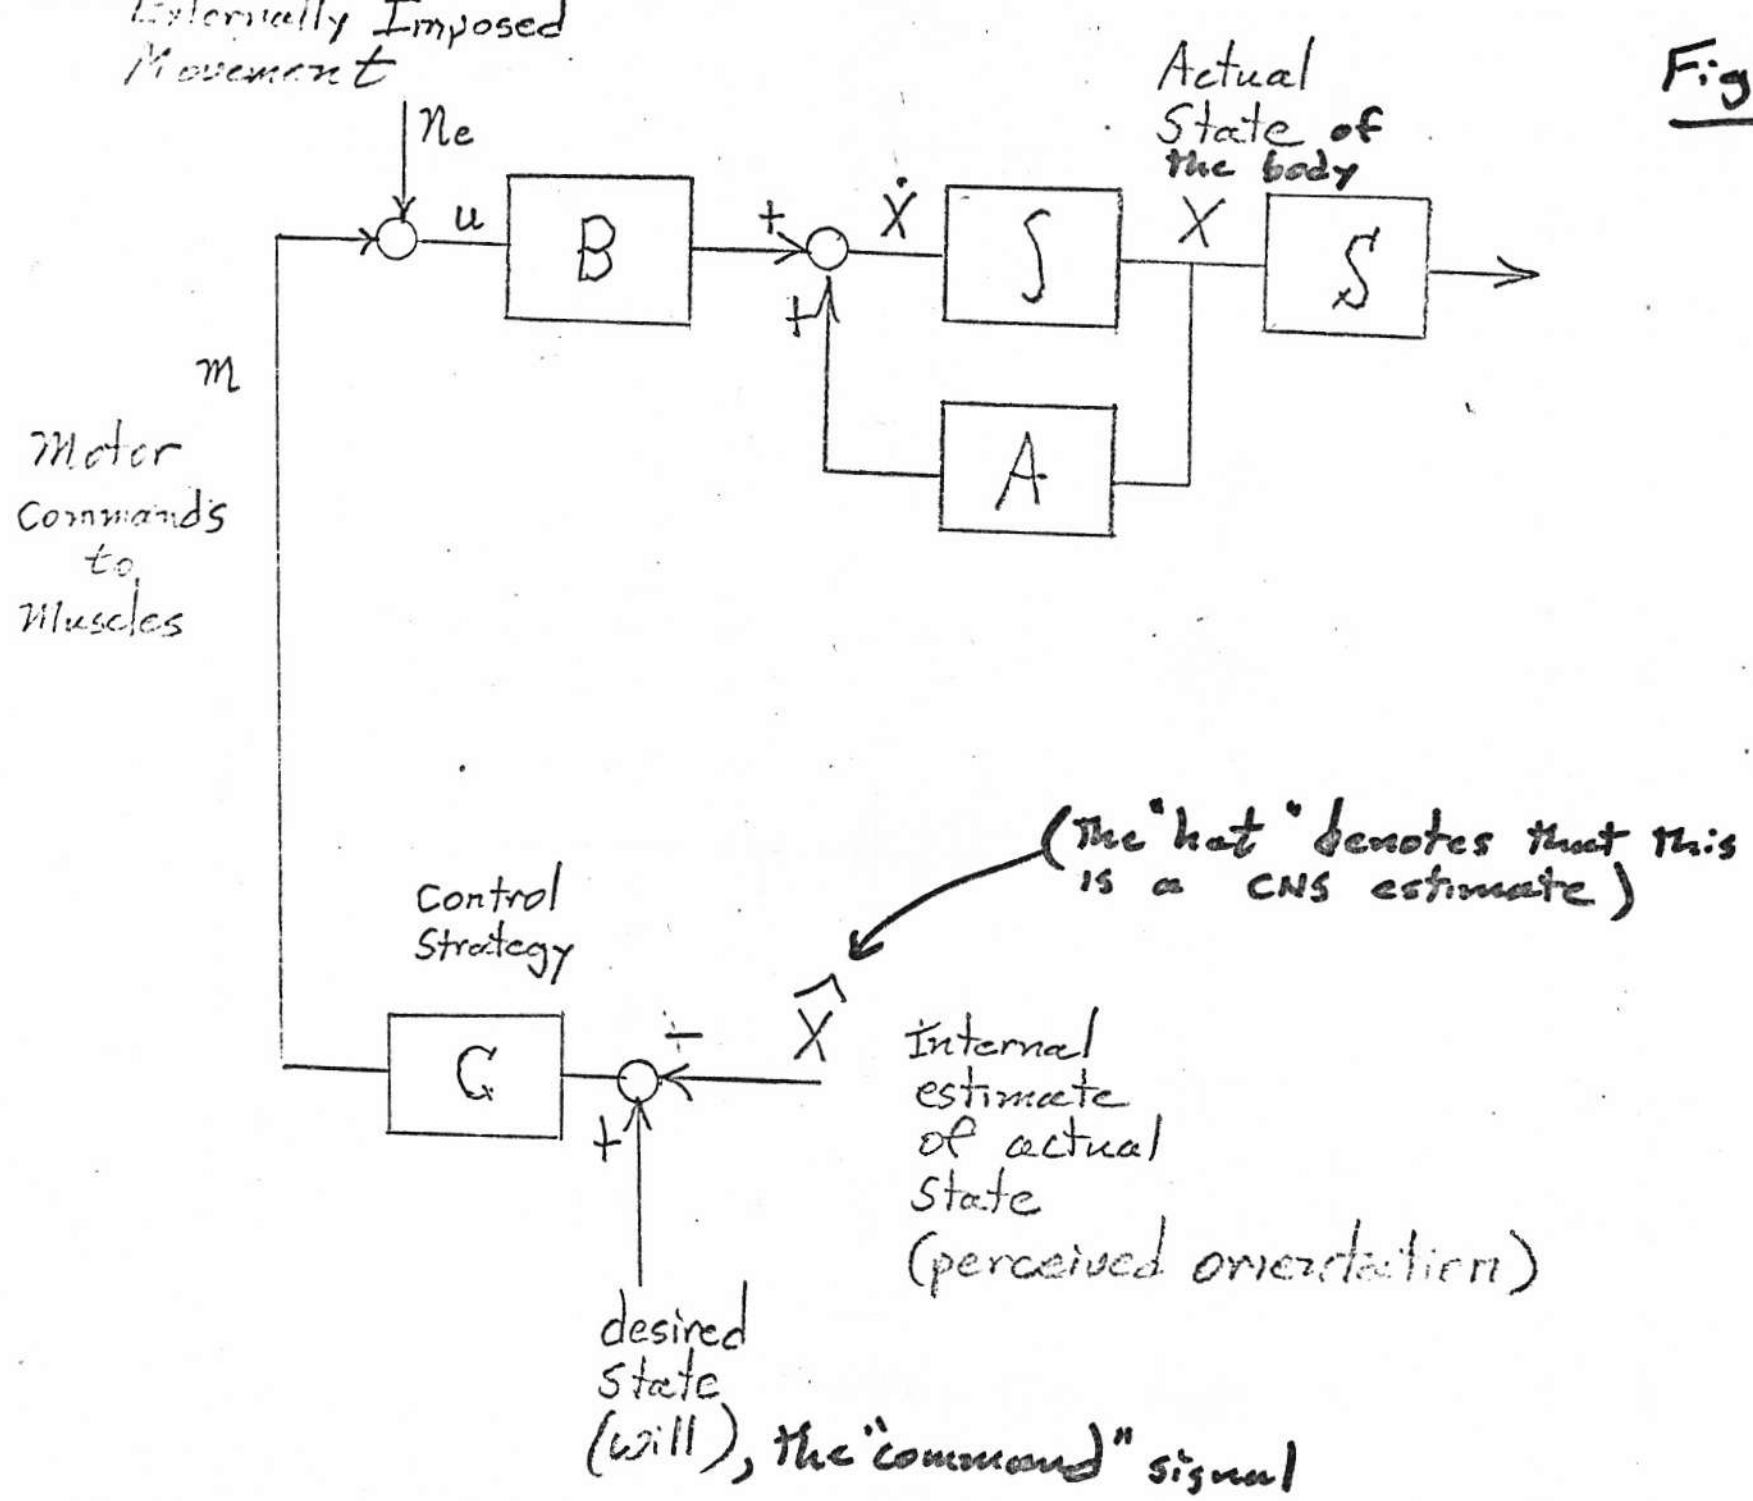 Externally Imposed
Movement
ne
Actual
State of
the body
Fig
u
B
+
Ẋ
∫
X
S
+
A
m
Motor
Commands
to
Muscles
(The "hat" denotes that this
is a CNS estimate)
Control
Strategy
C
−
X̂
+
Internal
estimate
of actual
State
(perceived orientation)
desired
State
(will), the "command" signal